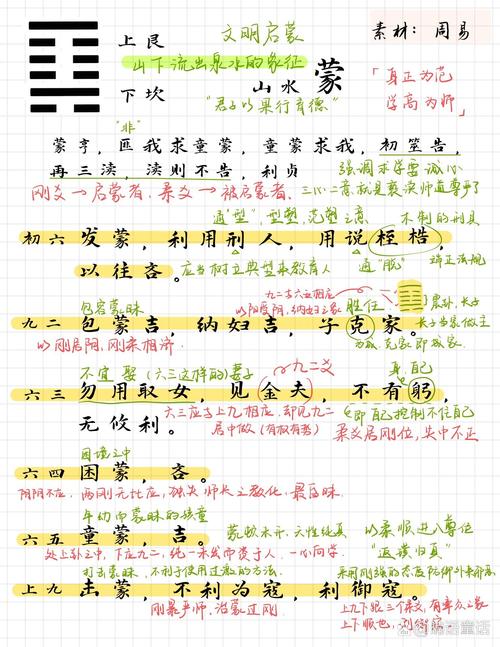 上艮
文明启蒙
素材：周易
山下流出泉水的象征
下坎
山水 蒙
"君子以果行育德"
「身正为范
学高为师」
"非"
蒙亨，匪我求童蒙，童蒙求我，初筮告，
再三渎，渎则不告，利贞
强调求学需诚心
刚爻→启蒙者，柔爻→被启蒙者，三心二意就是亵渎师道尊严了
通"型"，型塑，范塑之意
木制的刑具
初六 发蒙，利用刑人，用说桎梏，
以往吝。应当树立典型来教育人
通"脱"
端正法规
九二与六五相应
包容蒙昧
以阳受阴，纳妇之象
胜任
震卦，长子
九二 包蒙吉，纳妇吉，子克家。
长子当家做主
以刚居阴，刚柔相济
克家即成家
不宜 娶（六三这样的）妻子
九二爻
身，自己
六三 勿用取女，见金夫，不有躬，
无攸利。
六三应于上九相应，却见九二
居中做（有权有势）
即自己控制不住自己
柔爻居刚位，失中不正
困境之中
六四 困蒙，吝。
阴阴不应，两刚无比应，独失师长之教化，最昏昧．
年幼而蒙昧的孩童
六五 童蒙，吉。
蒙昧未开，天性纯真
以柔顺进入尊位
处上卦之中，下应九二，纯一未发而资于人，一心向学
"返璞归真"
打击蒙昧，不利于使用过激的方法．
上九 击蒙，不利为寇，利御寇。
刚暴严师，治蒙过刚
上下顺也，利御寇．